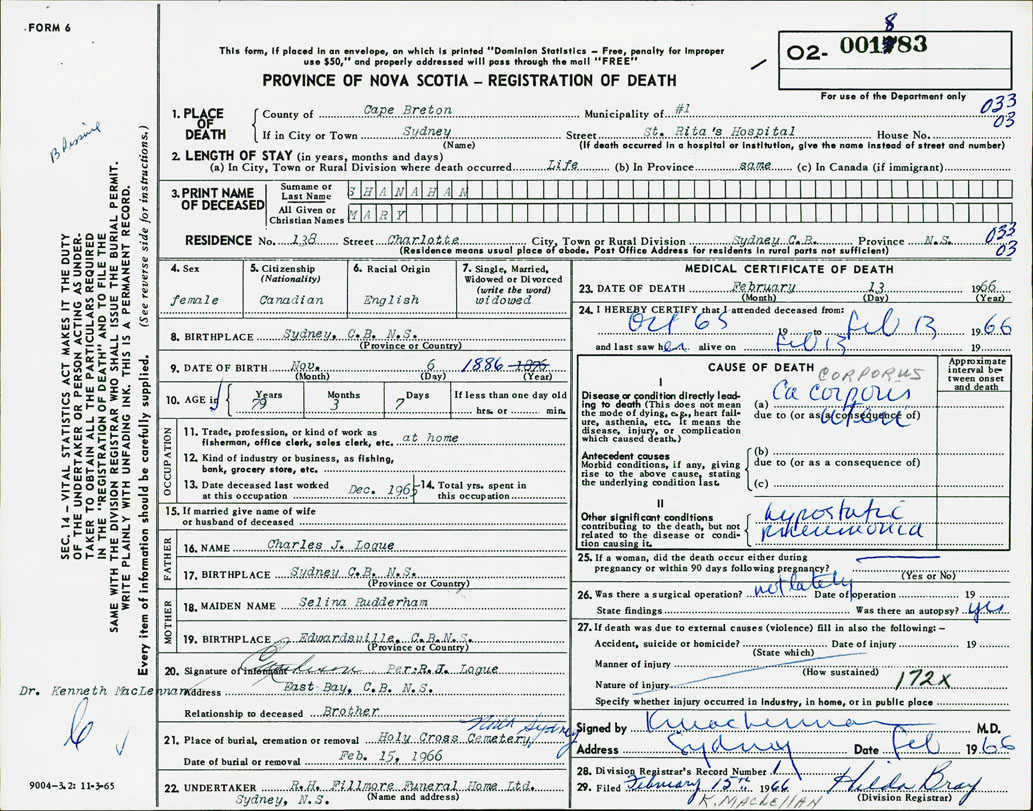 FORM 6
This form, if placed in an envelope, on which is printed "Dominion Statistics – Free, penalty for improper
use $50," and properly addressed will pass through the mail "FREE"
PROVINCE OF NOVA SCOTIA – REGISTRATION OF DEATH
8
O2- 001783
For use of the Department only
033
03
1. PLACE OF DEATH
County of Cape Breton Municipality of #1
If in City or Town Sydney Street St. Rita's Hospital House No.
(Name) (If death occurred in a hospital or institution, give the name instead of street and number)
2. LENGTH OF STAY (in years, months and days)
(a) In City, Town or Rural Division where death occurred Life (b) In Province same (c) In Canada (if immigrant)
3. PRINT NAME OF DECEASED
Surname or Last Name SHANAHAN
All Given or Christian Names MARY
RESIDENCE No. 138 Street Charlotte City, Town or Rural Division Sydney C.B. Province N.S.
(Residence means usual place of abode. Post Office Address for residents in rural parts not sufficient)
033
03
4. Sex
female
5. Citizenship
(Nationality)
Canadian
6. Racial Origin
English
7. Single, Married,
Widowed or Divorced
(write the word)
widowed
8. BIRTHPLACE Sydney, C.B. N.S.
(Province or Country)
9. DATE OF BIRTH Nov. 6 1886 1876
(Month) (Day) (Year)
10. AGE in Years Months Days If less than one day old
79 3 7 hrs. or min.
OCCUPATION
11. Trade, profession, or kind of work as
fisherman, office clerk, sales clerk, etc. at home
12. Kind of industry or business, as fishing,
bank, grocery store, etc.
13. Date deceased last worked
at this occupation Dec. 1965
14. Total yrs. spent in
this occupation
15. If married give name of wife
or husband of deceased
FATHER
16. NAME Charles J. Logue
17. BIRTHPLACE Sydney C.B. N.S.
(Province or Country)
MOTHER
18. MAIDEN NAME Selina Rudderham
19. BIRTHPLACE Edwardsville, C.B.N.S.
(Province or Country)
20. Signature of informant Per:R.J. Logue
Address East Bay, C.B. N.S.
Relationship to deceased Brother
21. Place of burial, cremation or removal Holy Cross Cemetery, North Sydney
Date of burial or removal Feb. 15, 1966
22. UNDERTAKER R.H. Fillmore Funeral Home Ltd.
Sydney, N.S. (Name and address)
MEDICAL CERTIFICATE OF DEATH
23. DATE OF DEATH February 13 1966
(Month) (Day) (Year)
24. I HEREBY CERTIFY that I attended deceased from:
Oct 65 19 to Feb 13 1966
and last saw her alive on Feb 13 19
CAUSE OF DEATH CORPORUS
Approximate
interval be-
tween onset
and death
I
Disease or condition directly lead-
ing to death (This does not mean
the mode of dying, e.g., heart fail-
ure, asthenia, etc. It means the
disease, injury, or complication
which caused death.)
(a) Ca corporis
due to (or as a consequence of)
uteri
Antecedent causes
Morbid conditions, if any, giving
rise to the above cause, stating
the underlying condition last.
(b)
due to (or as a consequence of)
(c)
II
Other significant conditions
contributing to the death, but not
related to the disease or condi-
tion causing it.
hypostatic
pneumonia
25. If a woman, did the death occur either during
pregnancy or within 90 days following pregnancy?
(Yes or No)
26. Was there a surgical operation? not lately Date of operation 19
State findings Was there an autopsy? yes
27. If death was due to external causes (violence) fill in also the following: –
Accident, suicide or homicide? Date of injury 19
(State which)
Manner of injury
(How sustained)
Nature of injury 172X
Specify whether injury occurred in industry, in home, or in public place
Signed by K Maclennan M.D.
Address Sydney Date Feb 1966
28. Division Registrar's Record Number 1
29. Filed February 15th 1966 Hilda Bray
K. MACLELLAN (Division Registrar)
SEC. 14 – VITAL STATISTICS ACT MAKES IT THE DUTY
OF THE UNDERTAKER OR PERSON ACTING AS UNDER-
TAKER TO OBTAIN ALL THE PARTICULARS REQUIRED
IN THE "REGISTRATION OF DEATH" AND TO FILE THE
SAME WITH THE DIVISION REGISTRAR WHO SHALL ISSUE THE BURIAL PERMIT.
WRITE PLAINLY WITH UNFADING INK. THIS IS A PERMANENT RECORD.
Every item of information should be carefully supplied. (See reverse side for instructions.)
Dr. Kenneth MacLennan
9004-3.2: 11-3-65